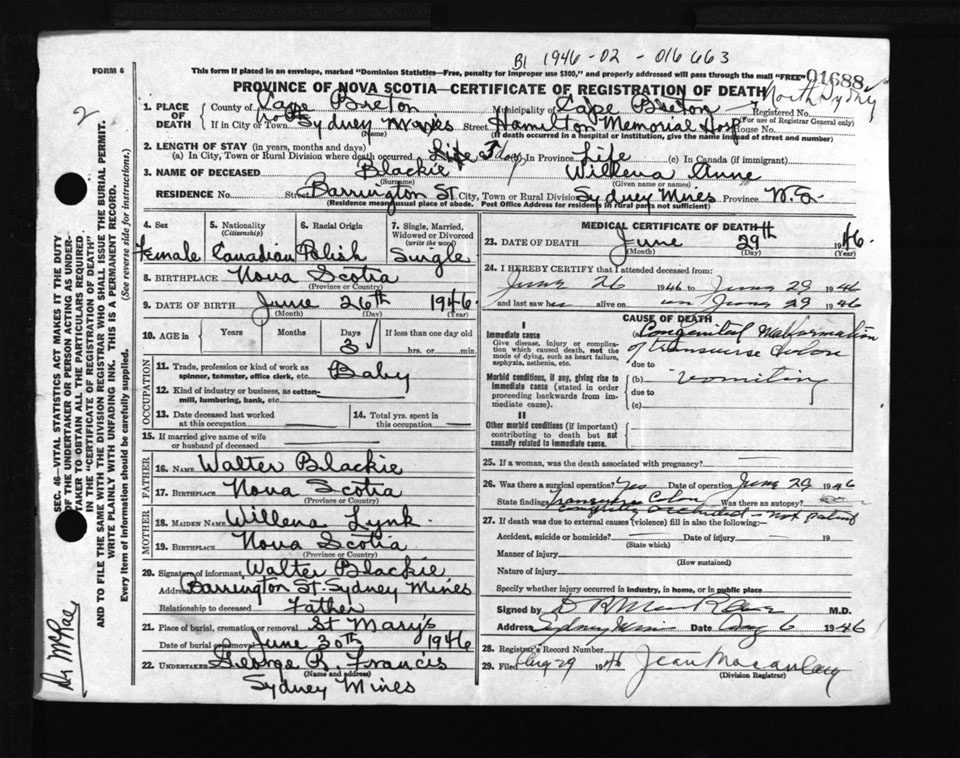 B1 1946-02-016663
FORM 6
This form if placed in an envelope, marked "Dominion Statistics—Free, penalty for improper use $300," and properly addressed will pass through the mail "FREE"
01688
PROVINCE OF NOVA SCOTIA—CERTIFICATE OF REGISTRATION OF DEATH
North Sydney
2
1. PLACE OF DEATH
County of Cape Breton Municipality of Cape Breton Registered No.
(For use of Registrar General only)
If in City or Town North Sydney Mines Street Hamilton Memorial Hosp House No.
(Name) (If death occurred in a hospital or institution, give the name instead of street and number)
2. LENGTH OF STAY (in years, months and days)
(a) In City, Town or Rural Division where death occurred Life 3 days In Province Life (c) In Canada (if immigrant)
3. NAME OF DECEASED Blackie Willena Anne
(Surname) (Given name or names)
RESIDENCE No. Street Barrington St. City, Town or Rural Division Sydney Mines Province N.S.
(Residence means usual place of abode. Post Office Address for residents in rural parts not sufficient)
4. Sex Female
5. Nationality (Citizenship) Canadian
6. Racial Origin Polish
7. Single, Married, Widowed or Divorced (write the word) Single
8. BIRTHPLACE Nova Scotia
(Province or Country)
9. DATE OF BIRTH June 26th 1946
(Month) (Day) (Year)
10. AGE in Years Months Days 3 If less than one day old
hrs. or min.
OCCUPATION
11. Trade, profession or kind of work as spinner, teamster, office clerk, etc. Baby
12. Kind of industry or business, as cotton-mill, lumbering, bank, etc.
13. Date deceased last worked at this occupation
14. Total yrs. spent in this occupation
15. If married give name of wife or husband of deceased
FATHER
16. NAME Walter Blackie
17. BIRTHPLACE Nova Scotia
(Province or Country)
MOTHER
18. MAIDEN NAME Willena Lynk.
19. BIRTHPLACE Nova Scotia
(Province or Country)
20. Signature of informant Walter Blackie
Address Barrington St. Sydney Mines
Relationship to deceased Father
21. Place of burial, cremation or removal St Mary's
Date of burial or removal June 30th 1946
22. UNDERTAKER George R. Francis
(Name and address)
Sydney Mines
MEDICAL CERTIFICATE OF DEATH
23. DATE OF DEATH June 29th 1946.
(Month) (Day) (Year)
24. I HEREBY CERTIFY that I attended deceased from
June 26 1946 to June 29 1946
and last saw alive on June 29 1946
CAUSE OF DEATH
I
Immediate cause
Give disease, injury or complication which caused death, not the mode of dying, such as heart failure, asphyxia, asthenia, etc.
(a) Congenital malformation of transverse colon
due to
Morbid conditions, if any, giving rise to immediate cause (stated in order proceeding backwards from immediate cause).
(b) vomiting
due to
(c)
II
Other morbid conditions (if important) contributing to death but not causally related to immediate cause.
25. If a woman, was the death associated with pregnancy?
26. Was there a surgical operation? Yes Date of operation June 29 1946
State findings Transverse Colon Was there an autopsy?
not patent
27. If death was due to external causes (violence) fill in also the following:—
Accident, suicide or homicide? Date of injury 19
(State which)
Manner of injury
(How sustained)
Nature of injury
Specify whether injury occurred in industry, in home, or in public place
Signed by M.D.
Address Sydney Mines Date Aug 6 1946
28. Registrar's Record Number
29. Filed Aug 29 1946 Jean Macaulay
(Division Registrar)
SEC. 46—VITAL STATISTICS ACT MAKES IT THE DUTY OF THE UNDERTAKER OR PERSON ACTING AS UNDERTAKER TO OBTAIN ALL THE PARTICULARS REQUIRED IN THE "CERTIFICATE OF REGISTRATION OF DEATH" AND TO FILE THE SAME WITH THE DIVISION REGISTRAR WHO SHALL ISSUE THE BURIAL PERMIT.
WRITE PLAINLY WITH UNFADING INK. THIS IS A PERMANENT RECORD.
Every item of information should be carefully supplied. (See reverse side for instructions.)
Dr. McRae